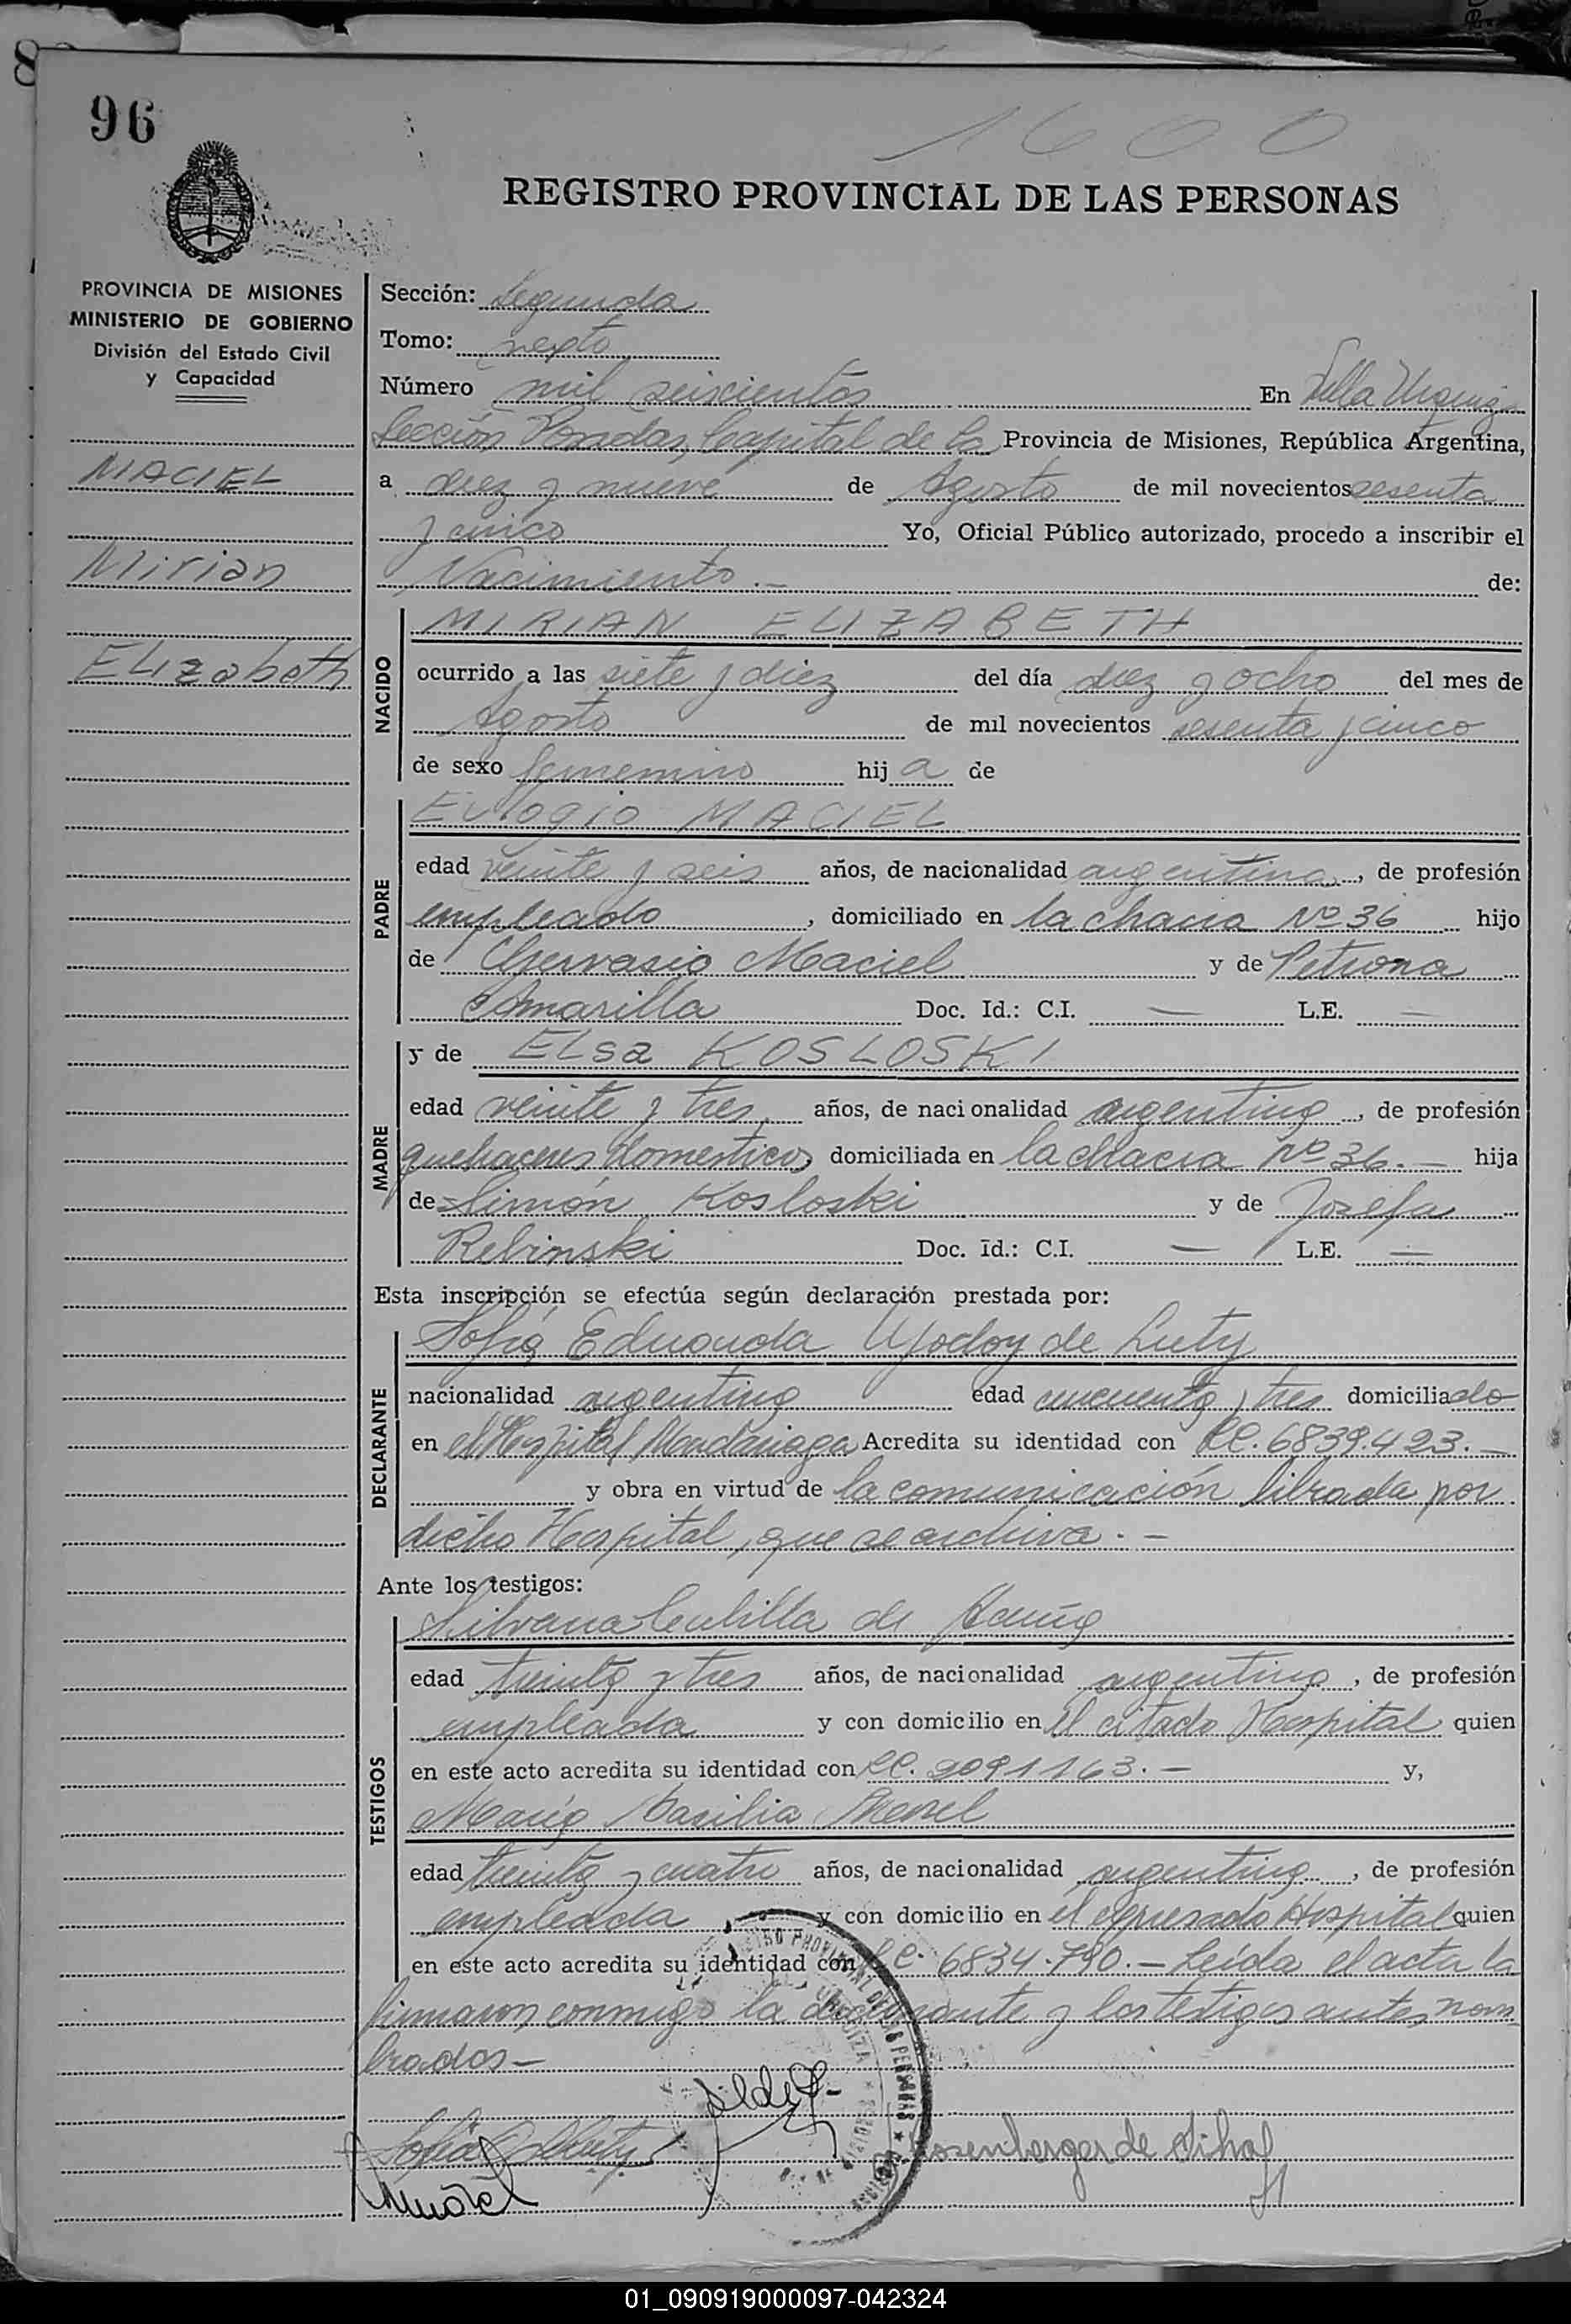 96
1600
REGISTRO PROVINCIAL DE LAS PERSONAS
PROVINCIA DE MISIONES
MINISTERIO DE GOBIERNO
División del Estado Civil
y Capacidad
MACIEL
Mirian
ELizabeth
Sección: Segunda
Tomo: sexto
Número mil seiscientos En Villa Urquiza
Sección Posadas, Capital de la Provincia de Misiones, República Argentina,
a diez y nueve de Agosto de mil novecientos sesenta
y cinco Yo, Oficial Público autorizado, procedo a inscribir el
Nacimiento.— de:
NACIDO
MIRIAN ELIZABETH
ocurrido a las siete y diez del día diez y ocho del mes de
Agosto de mil novecientos sesenta y cinco
de sexo femenino hija de
PADRE
EULOGIO MACIEL
edad veinte y seis años, de nacionalidad argentina, de profesión
empleado, domiciliado en la chacra Nº 36 hijo
de Gervasio Maciel y de Petrona
Amarilla Doc. Id.: C.I. — L.E. —
MADRE
y de ELsa KOSLOSKI
edad veinte y tres años, de nacionalidad argentina, de profesión
quehaceres domesticos, domiciliada en la chacra nº 36.— hija
de Simón Kosloski y de Josefa
Rebinski Doc. Id.: C.I. — L.E. —
Esta inscripción se efectúa según declaración prestada por:
DECLARANTE
Sofia Eduarda Godoy de Luty
nacionalidad argentina edad cincuenta y tres domiciliado
en el Hospital Madariaga Acredita su identidad con LC. 6839.423.—
y obra en virtud de la comunicación librada por
dicho Hospital, que se archiva.—
Ante los testigos:
TESTIGOS
Silvana de
edad treinta y tres años, de nacionalidad argentina, de profesión
empleada y con domicilio en el citado Hospital quien
en este acto acredita su identidad con LC. 9091163.— y,
Maria Basilia
edad treinta y cuatro años, de nacionalidad argentina, de profesión
empleada y con domicilio en el expresado Hospital quien
en este acto acredita su identidad con LC. 6834.790.— Leída el acta la
firmaron conmigo la declarante y los testigos antes nom
brados—
REGISTRO PROVINCIAL DE LAS PERSONAS
URQUIZA
Sofia G de Luty
Rosenberger de
01_090919000097-042324